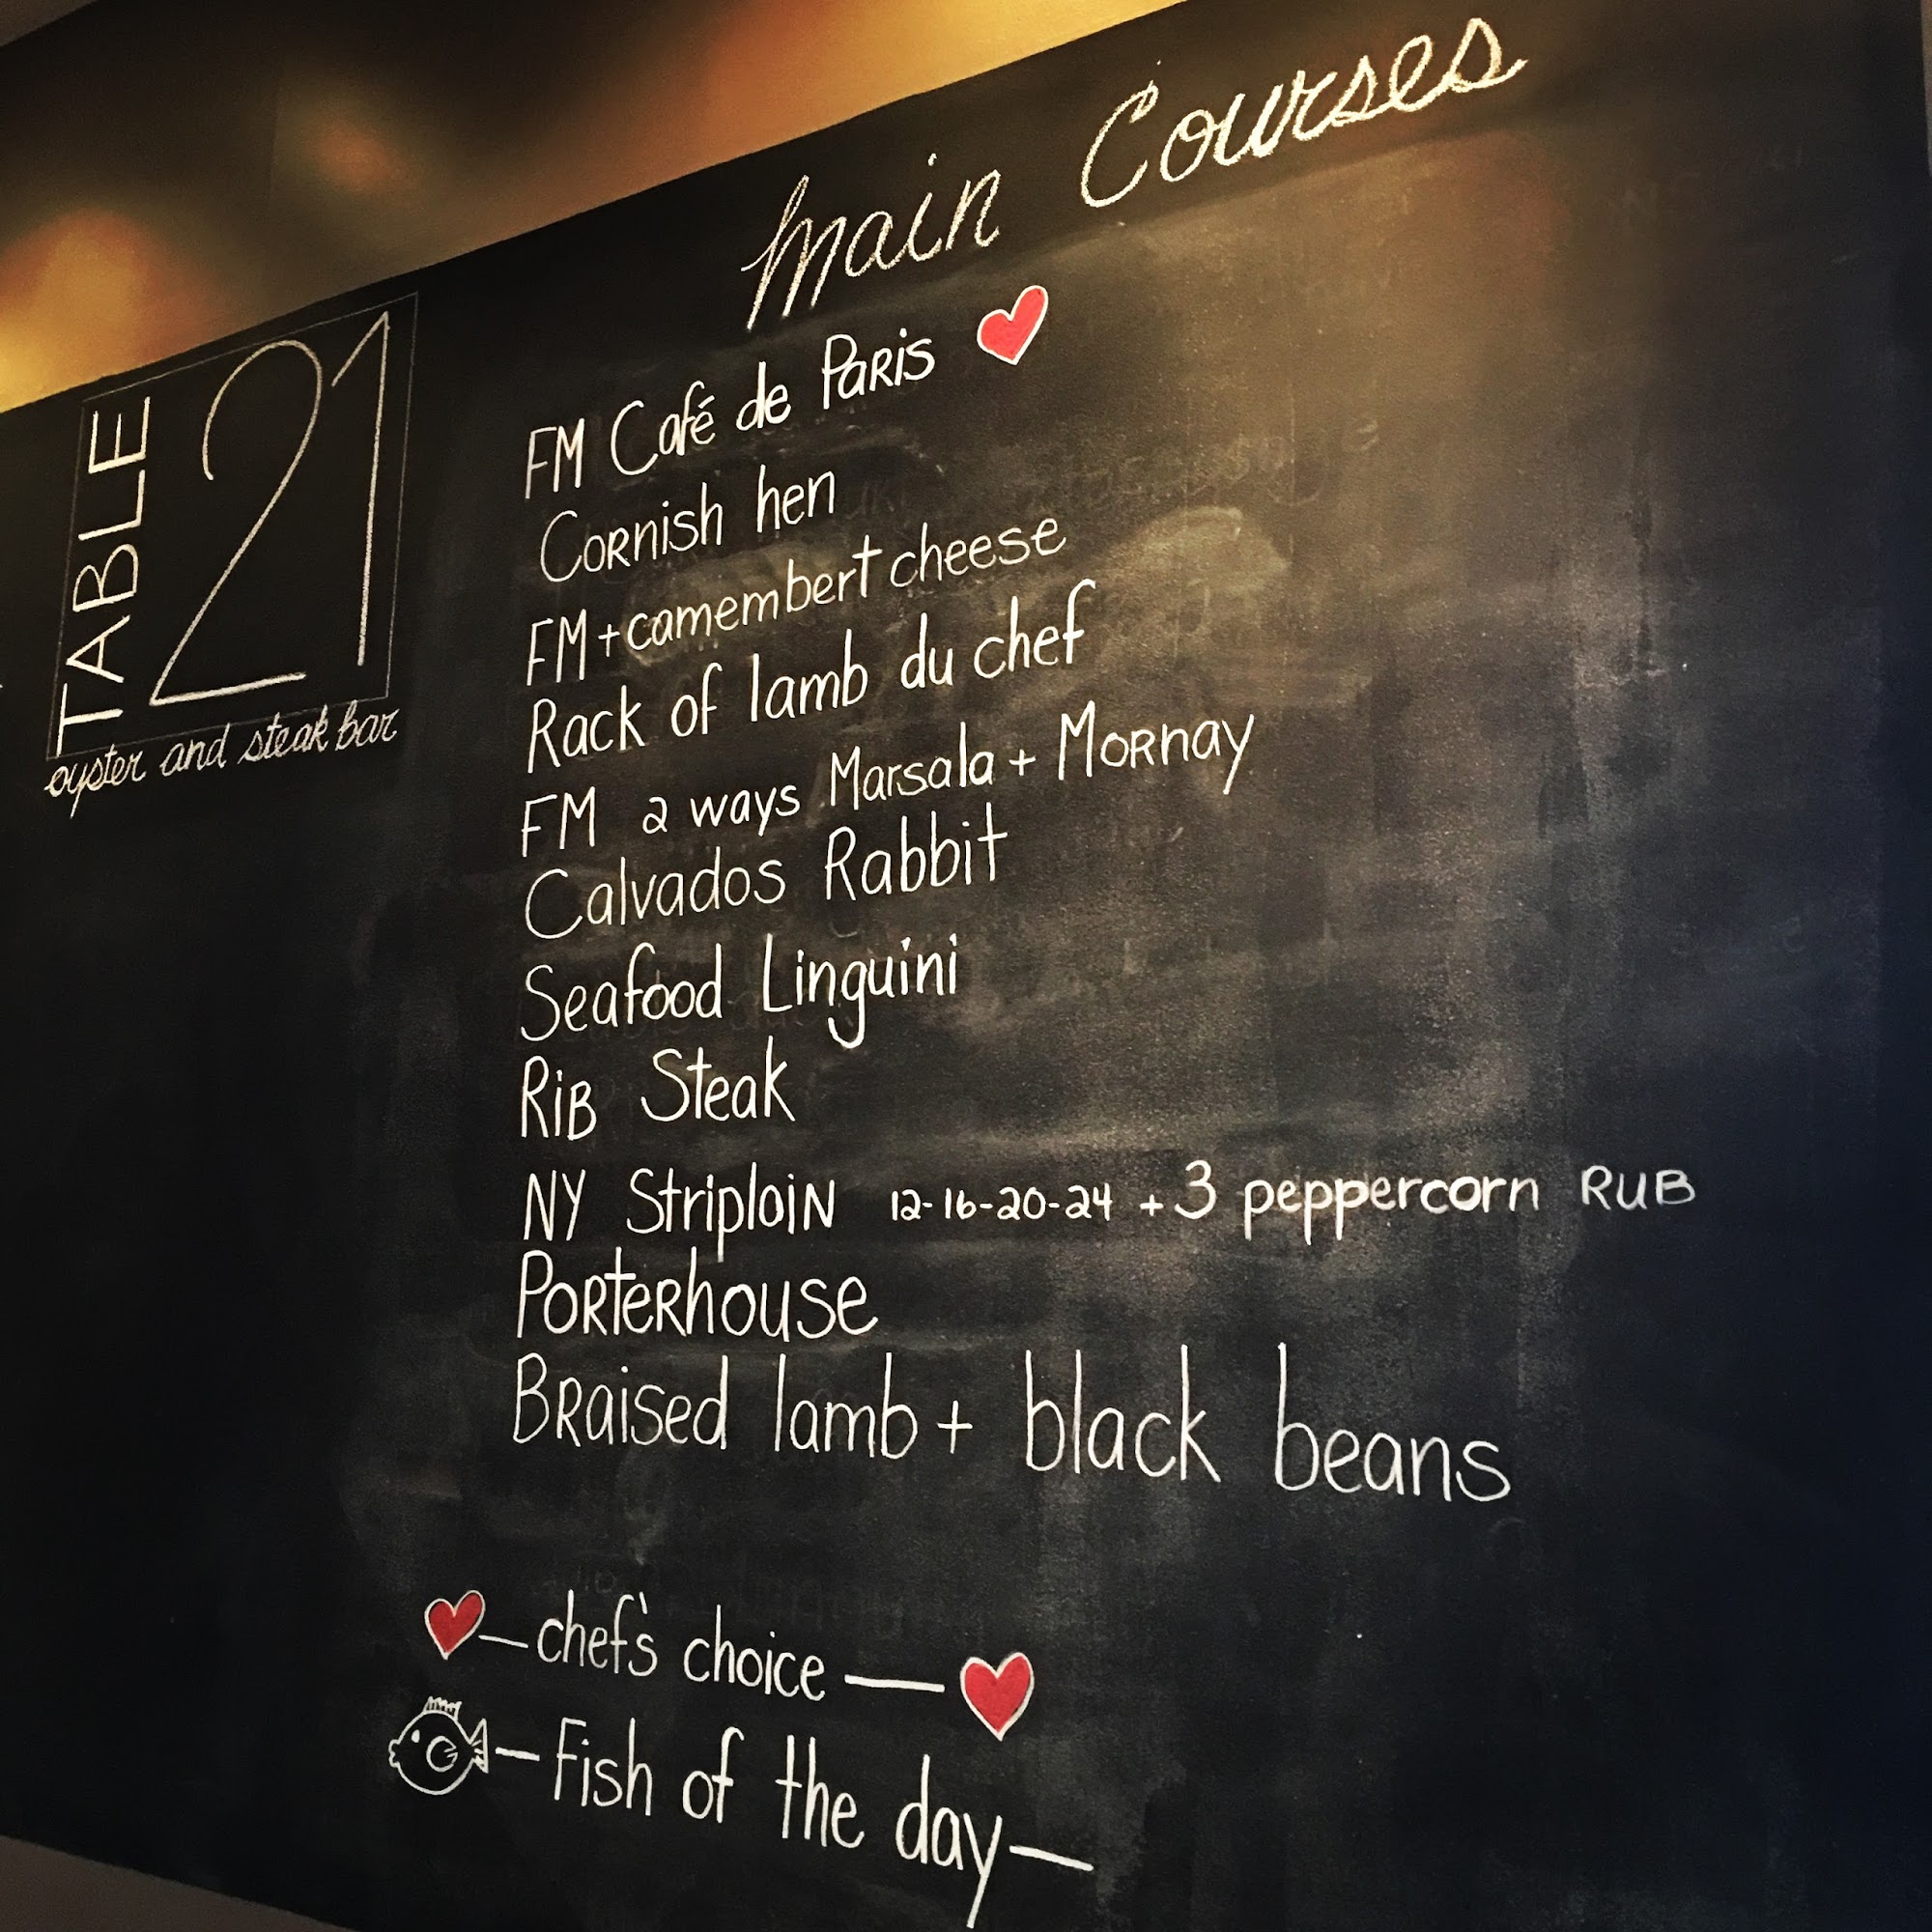 Main Courses
TABLE
21
oyster and steak bar
FM Café de Paris
Cornish hen
FM + camembert cheese
Rack of lamb du chef
FM 2 ways Marsala + Mornay
Calvados Rabbit
Seafood Linguini
Rib Steak
NY Striploin 12-16-20-24 + 3 peppercorn RUB
Porterhouse
Braised lamb + black beans
— chef's choice —
— Fish of the day —